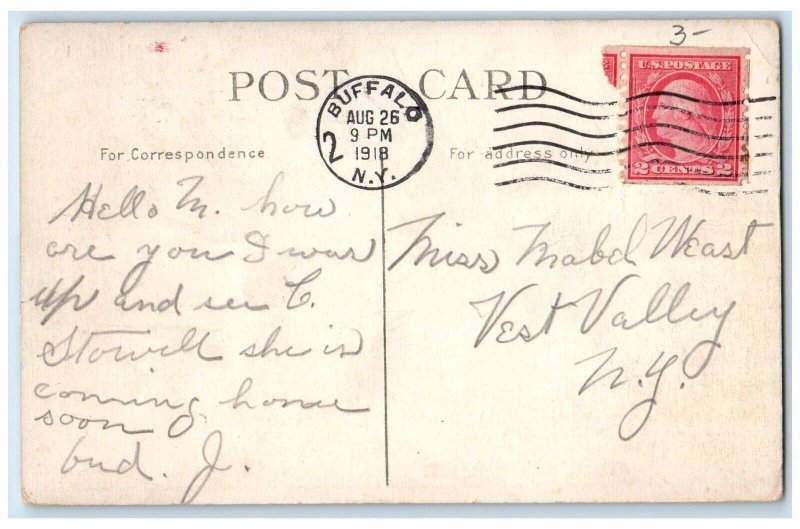 3-
POST CARD
U.S. POSTAGE
2 CENTS 2
BUFFALO
AUG 26
9 PM
1918
N.Y.
2
For Correspondence
For address only
Hello M. how
are you I was
up and see C.
Stowell she is
coming home
soon
Bud. J.
Miss Mabel Weast
West Valley
N.Y.